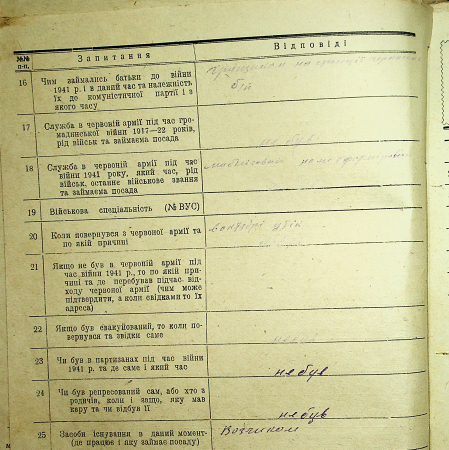 №№ п-п. Запитання Відповіді
16 Чим займались батьки до війни
1941 р. і в даний час та належність
їх до комуністичної партії і з
якого часу
17 Служба в червоній армії під час гро-
мадянської війни 1917—22 років,
рід військ та займаєма посада
не був
18 Служба в червоній армії під час
війни 1941 року, який час, рід
військ, останнє військове звання
та займаєма посада
19 Військова спеціяльність (№ ВУС)
20 Коли повернувся з червоної армії та
по якій причині
21 Якщо не був в червоній армії під
час війни 1941 р., то по якій при-
чині та де перебував підчас від-
ходу червоної армії (чим може
підтвердити, а коли свідками то їх
адреса)
22 Якщо був евакуйований, то коли по-
вернувся та звідки саме
23 Чи був в партизанах під час війни
1941 р. та де саме і який час
не був
24 Чи був репресований сам, або хто з
родичів, коли і защо, яку мав
кару та чи відбув її
не був
25 Засоби існування в даний момент- Возчиком
(де працює і яку займає посаду)